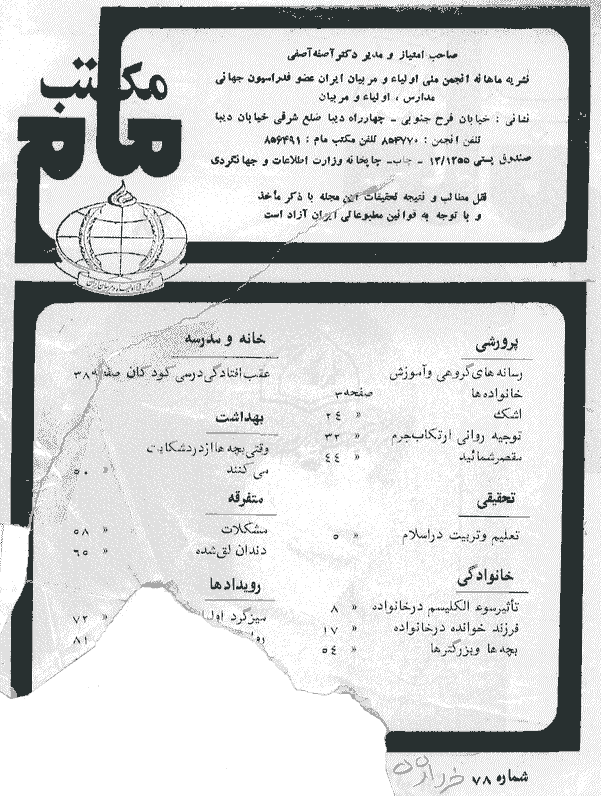 مکتب
مام
صاحب امتیاز و مدیر دکتر آصفه آصفی
نشریه ماهانه انجمن ملی اولیاء و مربیان ایران عضو فدراسیون جهانی
مدارس ، اولیاء و مربیان
نشانی : خیابان فرح جنوبی – چهارراه دیبا ضلع شرقی خیابان دیبا
تلفن انجمن : ۸۵۴۷۷۰ تلفن مکتب مام : ۸۵۶۴۹۱
صندوق پستی ۱۳/۱۲۵۵ – چاپ– چاپخانه وزارت اطلاعات و جهانگردی
نقل مطالب و نتیجه تحقیقات این مجله با ذکر مأخذ
و با توجه به قوانین مطبوعاتی ایران آزاد است
پرورشی
رسانه های گروهی و آموزش
خانواده ها صفحه ۳
اشک » ۲٤
توجیه روانی ارتکاب جرم » ۳۲
مقصر شمائید » ٤٤
تحقیقی
تعلیم و تربیت در اسلام » ٥
خانوادگی
تأثیر سوء الکلیسم در خانواده » ۸
فرزند خوانده در خانواده » ۱۷
بچه ها و بزرگترها » ٥٤
خانه و مدرسه
عقب افتادگی درسی کودکان صفحه ۳۸
بهداشت
وقتی بچه ها از درد شکایت
می کنند » ٥۰
متفرقه
مشکلات » ٥۸
دندان لق شده » ٦٥
رویدادها
میزگرد » ۷۲
» ۸۱
شماره ۷۸ خرداد